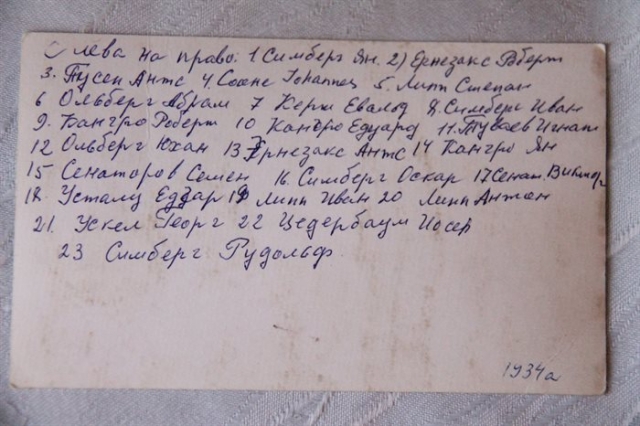 С лева на право: 1 Симберг Ян. 2) Ернезакс Роберт
3. Тусен Антс 4. Соене Johannes 5. Липп Степан
6 Ольберг Абрам 7 Керт Евалд 8. Симберг Иван
9. Кангро Роберт 10 Кангро Едуард 11. Туваев Игнат
12 Ольберг Юхан 13. Ернезакс Антс 14 Кангро Ян
15 Сенаторов Семен 16. Симберг Оскар 17 Сенат. Виктор
18. Усталу Едгар 19 Липп Иван 20 Липп Антон
21. Ускел Георг 22 Цедербаум Иосеп
23 Симберг Рудольф.
1934а